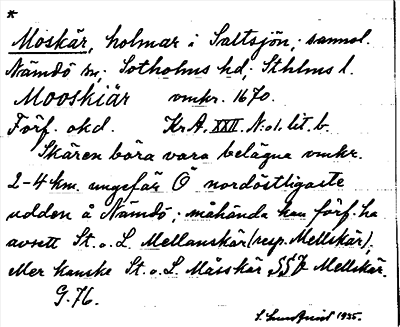 *
Moskär, holmar i Saltsjön; sannol.
Nämdö sn; Sotholms hd; Sthlms l.
Mooskiär omkr. 1670.
Förf. okd. Kr.A. XXII N:o1. lit. b.
Skären böra vara belägna omkr.
2-4 km. ungefär Ö nordöstligaste
udden å Nämdö; måhända kan förf. ha
avsett St. o. L. Mellanskär (resp. Mellskär),
eller kanske St. o. L. Måsskär SSV Mellskär.
G. 76.
1935.